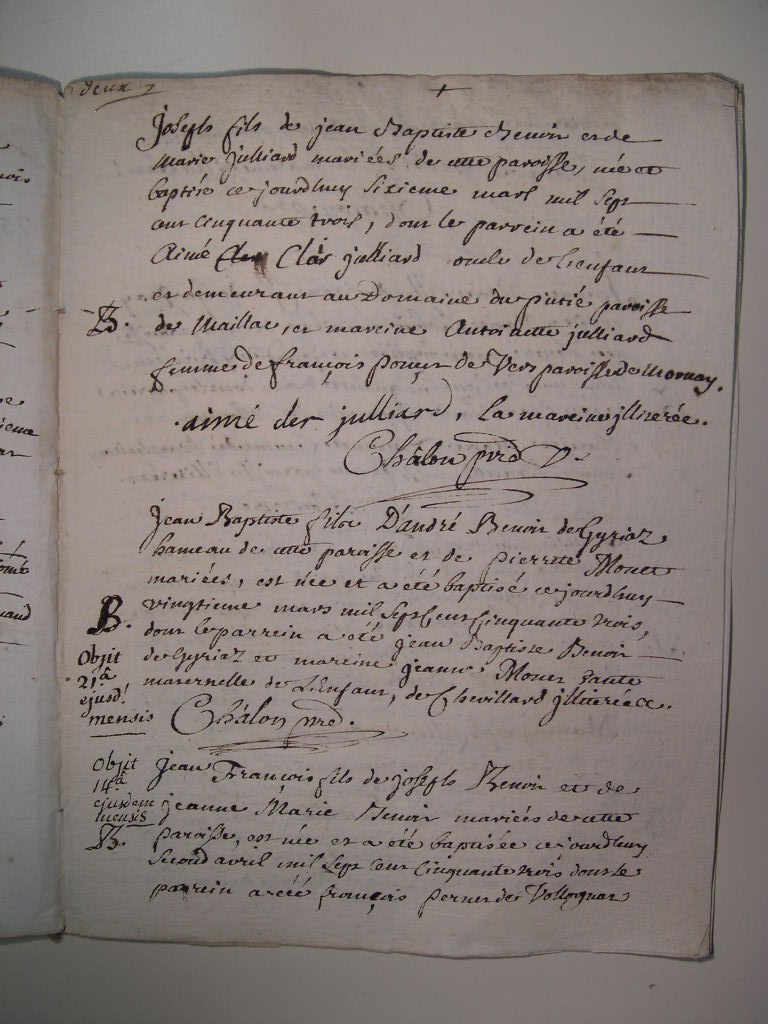 deux
Joseph fils de jean Baptiste Benoir et de
Marie Julliard mariées de cette paroisse, née et
baptisé ce jourdhuy sixieme mars mil sept
cent cinquante trois, dont le parrein a été
Aimé Clar julliard oncle de L'enfant
et demeurant au Domaine du paroisse
B. de Maillac, et mareine Antoinette julliard
femme de françois de Vers paroisse de Mornay.
aimé cler julliard, La mareine jlliterée.
Châlon pvid
Jean Baptiste fils D'andré Benoir de Gyriaz
hameau de cette paroisse et de pierrete Monet
mariées, est née et a été baptisé ce jourdhuy
B. vingtieme mars mil sept Cent Cinquante trois,
dont le parrein a été jean Baptiste Benoir
Objit
21â
ejusd.
mensis
de Gyriaz et mareine jeanne Monet tante
maternelle de L'Enfant, de Chevillard jlliterée.
Châlon
Objit
14â
ejusdem
mensis
B.
Jean François fils de joseph Benoir et de
jeanne Marie Benoir mariées de cette
paroisse, est née et a été baptisée ce jourdhuy
second avril mil sept Cent Cinquante trois dont le
parrein a été françois perner de Vollognat